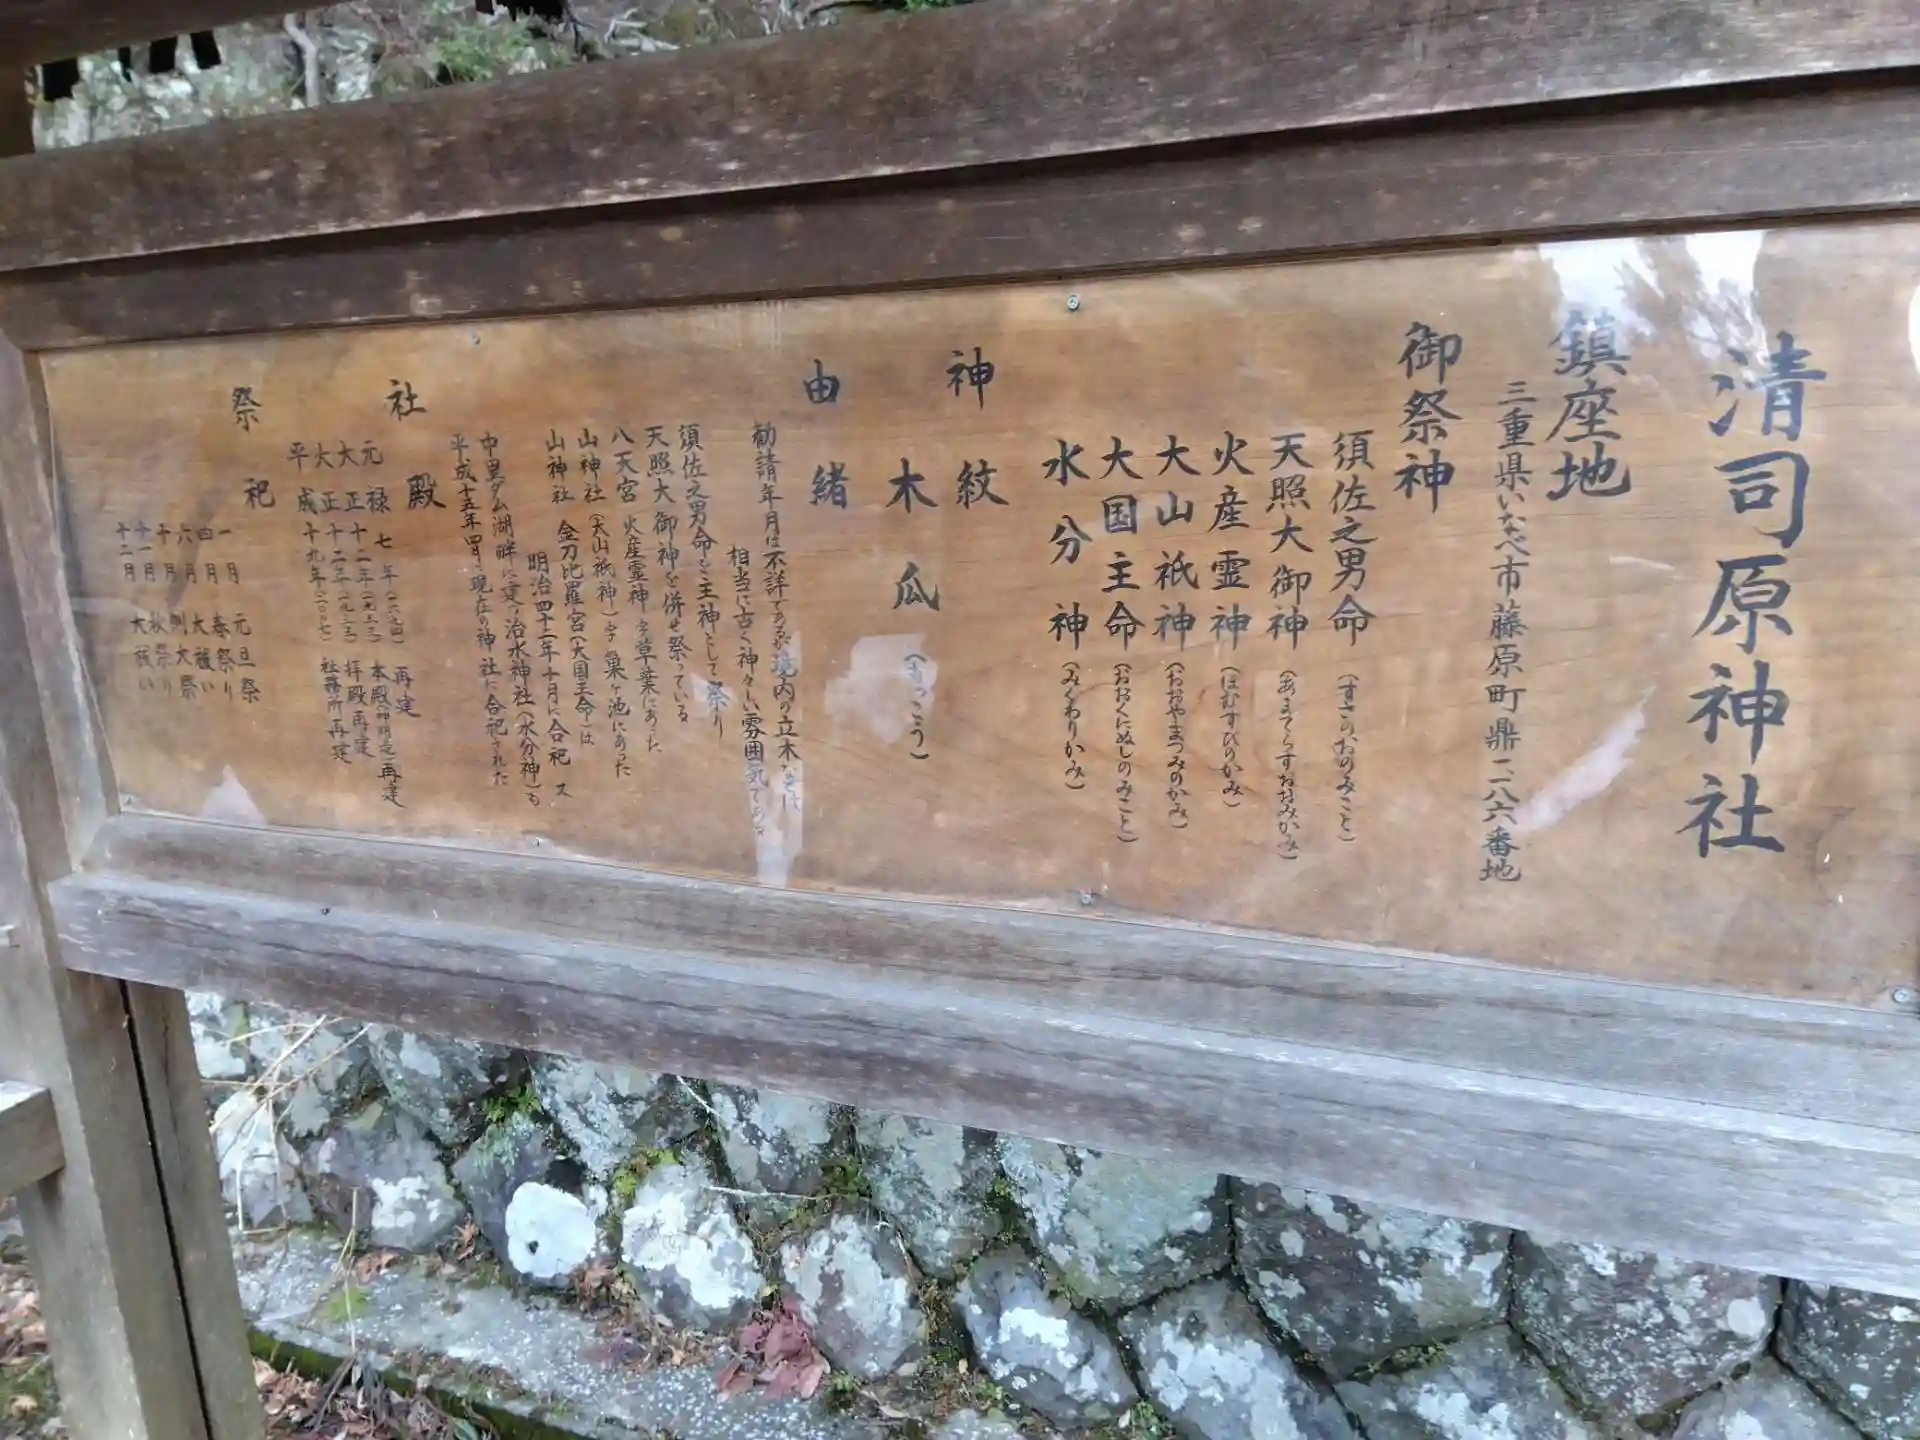 清司原神社
鎮座地
三重県いなべ市藤原町鼎二二八六番地
御祭神
須佐之男命（すさのおのみこと）
天照大御神（あまてらすおおみかみ）
火産霊神（ほむすびのかみ）
大山祇神（おおやまつみのかみ）
大国主命（おおくにぬしのみこと）
水分神（みくまりかみ）
神紋
木瓜（もっこう）
由緒
勧請年月は不詳であるが境内の立木などは
相当に古く神々しい雰囲気である
須佐之男命を主神として祭り
天照大御神を併せ祭っている
八天宮 火産霊神 字草葉にあった
山神社（大山祇神）字巣ヶ池にあった
山神社 金刀比羅宮（大国主命）は
明治四十二年十月に合祀ス
中里ダム湖畔に建つ治水神社（水分神）も
平成十五年四月に現在の神社に合祀された
社殿
元禄七年（一六九四） 再建
大正十二年（一九二三） 本殿 再建
大正十二年（一九二三） 拝殿再建
平成十九年（二〇〇七） 社務所再建
祭祀
一月 元旦祭
四月 春祭り
六月 大祓い
十月 例大祭
十一月 秋祭り
十二月 大祓い